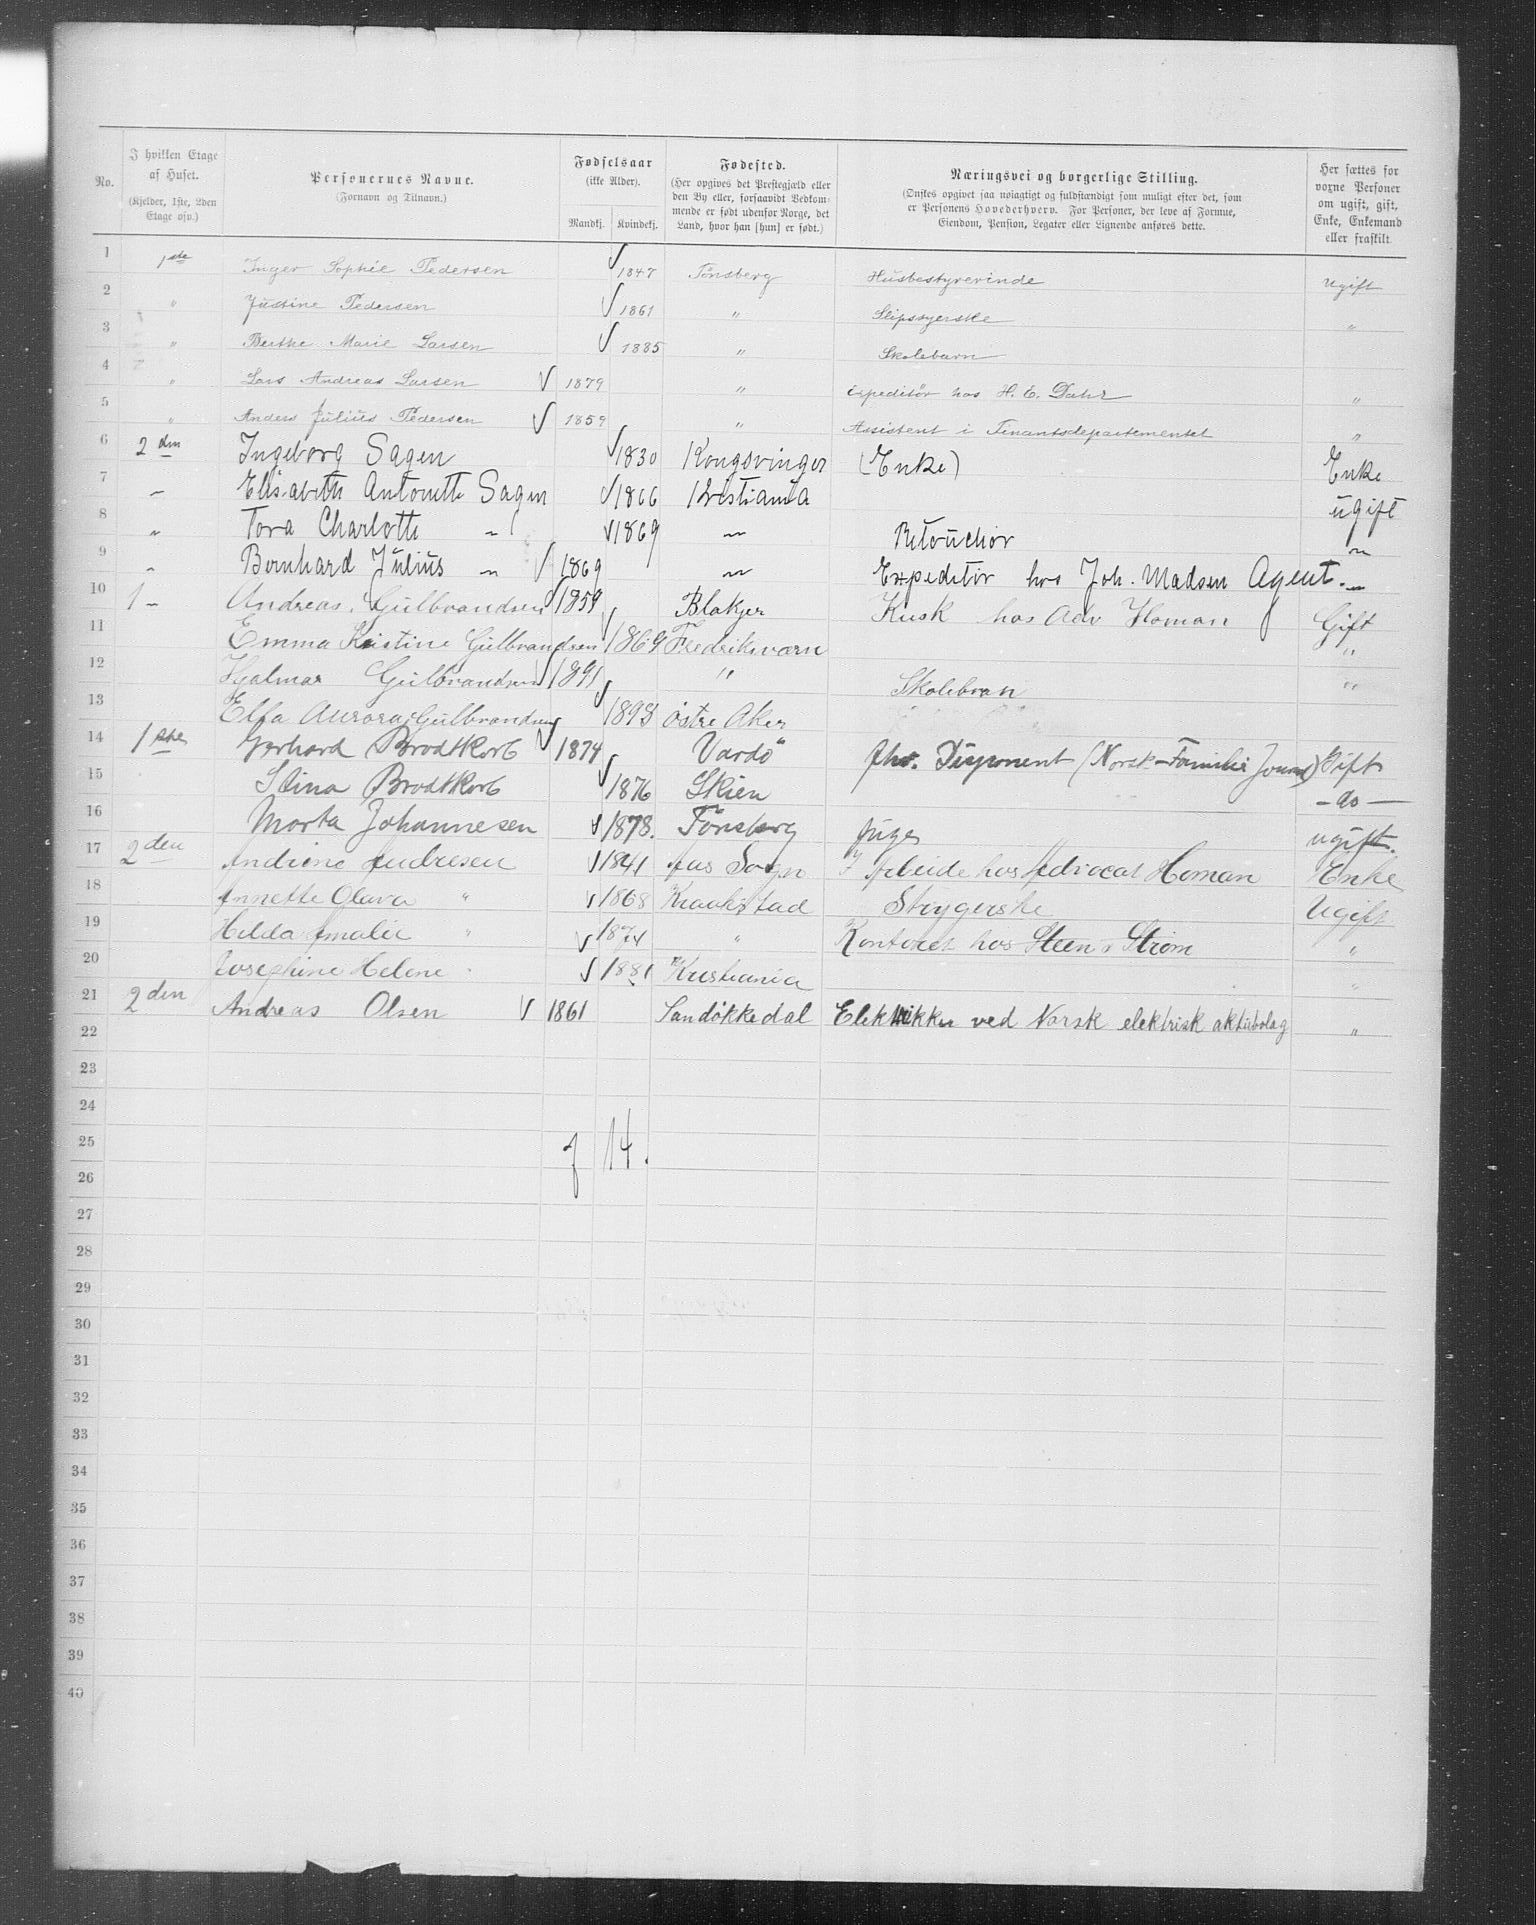 No. | I hvilken Etage af Huset. (Kjelder, 1ste, 2den Etage osv.) | Personernes Navne. (Fornavn og Tilnavn.) | Fødselsaar (ikke Alder). Mandkj. Kvindekj. | Fødested. (Her opgives det Præstegjæld eller den By eller, forsaavidt Vedkommende er født udenfor Norge, det Land, hvor han [hun] er født.) | Næringsvei og borgerlige Stilling. (Ønskes opgivet saa nøiagtigt og fuldstændigt som muligt efter det, som er Personens Hovederhverv. For Personer, der leve af Formue, Eiendom, Pension, Legater eller Lignende anføres dette. | Her sættes for voxne Personer om ugift, gift, Enke, Enkemand eller fraskilt.
1 1ste Inger Sophie Pedersen √ 1847 Tønsberg Husbestyrerinde Ugift
2 " Justine Pedersen √ 1861 " Slipssyerske "
3 " Berthe Marie Larsen √ 1885 " Skolebarn
4 " Lars Andreas Larsen √ 1879 " Expeditør hos H. E. Dahr "
5 " Anders Julius Pedersen √ 1859 " Assistent i Finantsdepartementet "
6 2den Ingeborg Sagen √ 1830 Kongsvinger (Enke) Enke
7 " Elisabeth Antonette Sagen √ 1866 Kristiania ugift
8 " Tora Charlotte " √ 1869 " Retouchør "
9 " Bernhard Julius " √ 1869 " Expeditør hos Joh. Madsen Agent. "
10 1 " Andreas Gulbrandsen √ 1859 Blakjer Kusk hos Adv Homan Gift
11 Emma Kristine Gulbrandsen √ 1869 Fredriksværn "
12 Hjalmar Gulbrandsen √ 1891 " Skolebran "
13 Elfa Aurora Gulbrandsen √ 1898 østre Aker
14 1ste Gerhard Brodtkorb √ 1874 Vardø Disponent (Norsk Familie Journal) Gift
15 Stina Brodtkorb √ 1876 Skien - do -
16 Marta Johannesen √ 1878. Tønsberg Pige ugift.
17 2den Andrine Andresen √ 1841 Aas Sogn I Arbeide hos Advocat Homan Enke
18 Annette Olava " √ 1868 Kraakstad Strygerske Ugift
19 Hilda Amalie " √ 1874 " Kontoret hos Steen & Strøm "
20 Josephine Helene " √ 1881 Kristiania "
21 2den Andreas Olsen √ 1861 Sandøkkedal Elektrikker ved Norsk elektrisk aktiebolag "
22
23
24
25 7 14.
26
27
28
29
30
31
32
33
34
35
36
37
38
39
40